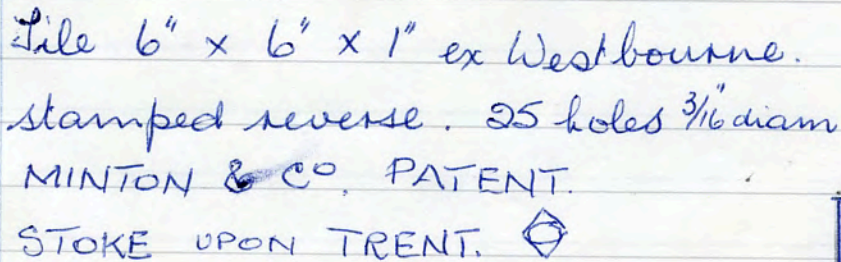 Tile 6" x 6" x 1" ex Westbourne.
stamped reverse. 25 holes 3/16" diam
MINTON & Co. PATENT.
STOKE UPON TRENT.